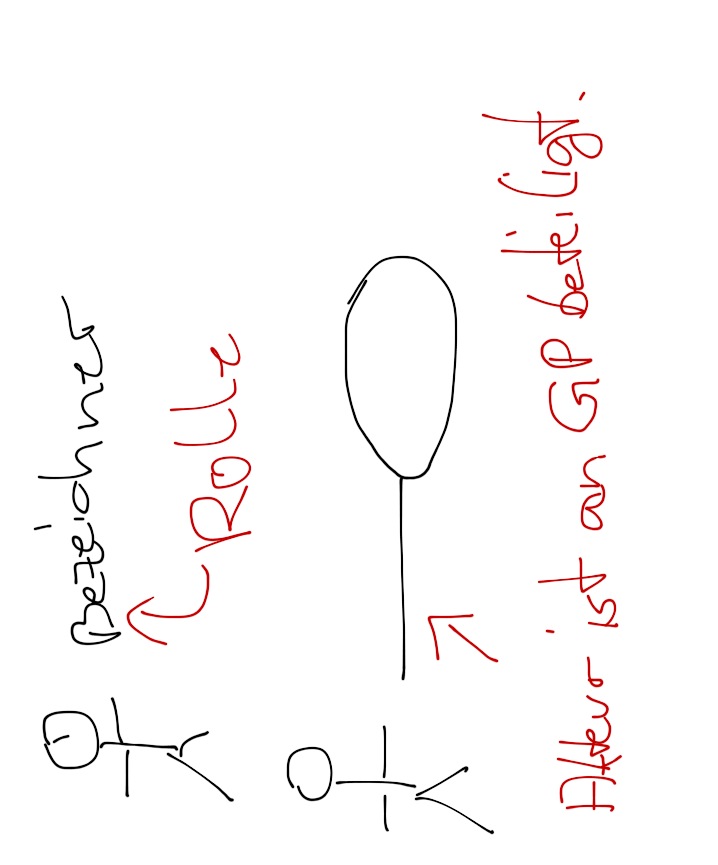 Bezeichner
Rolle
Akteur ist an GP beteiligt.